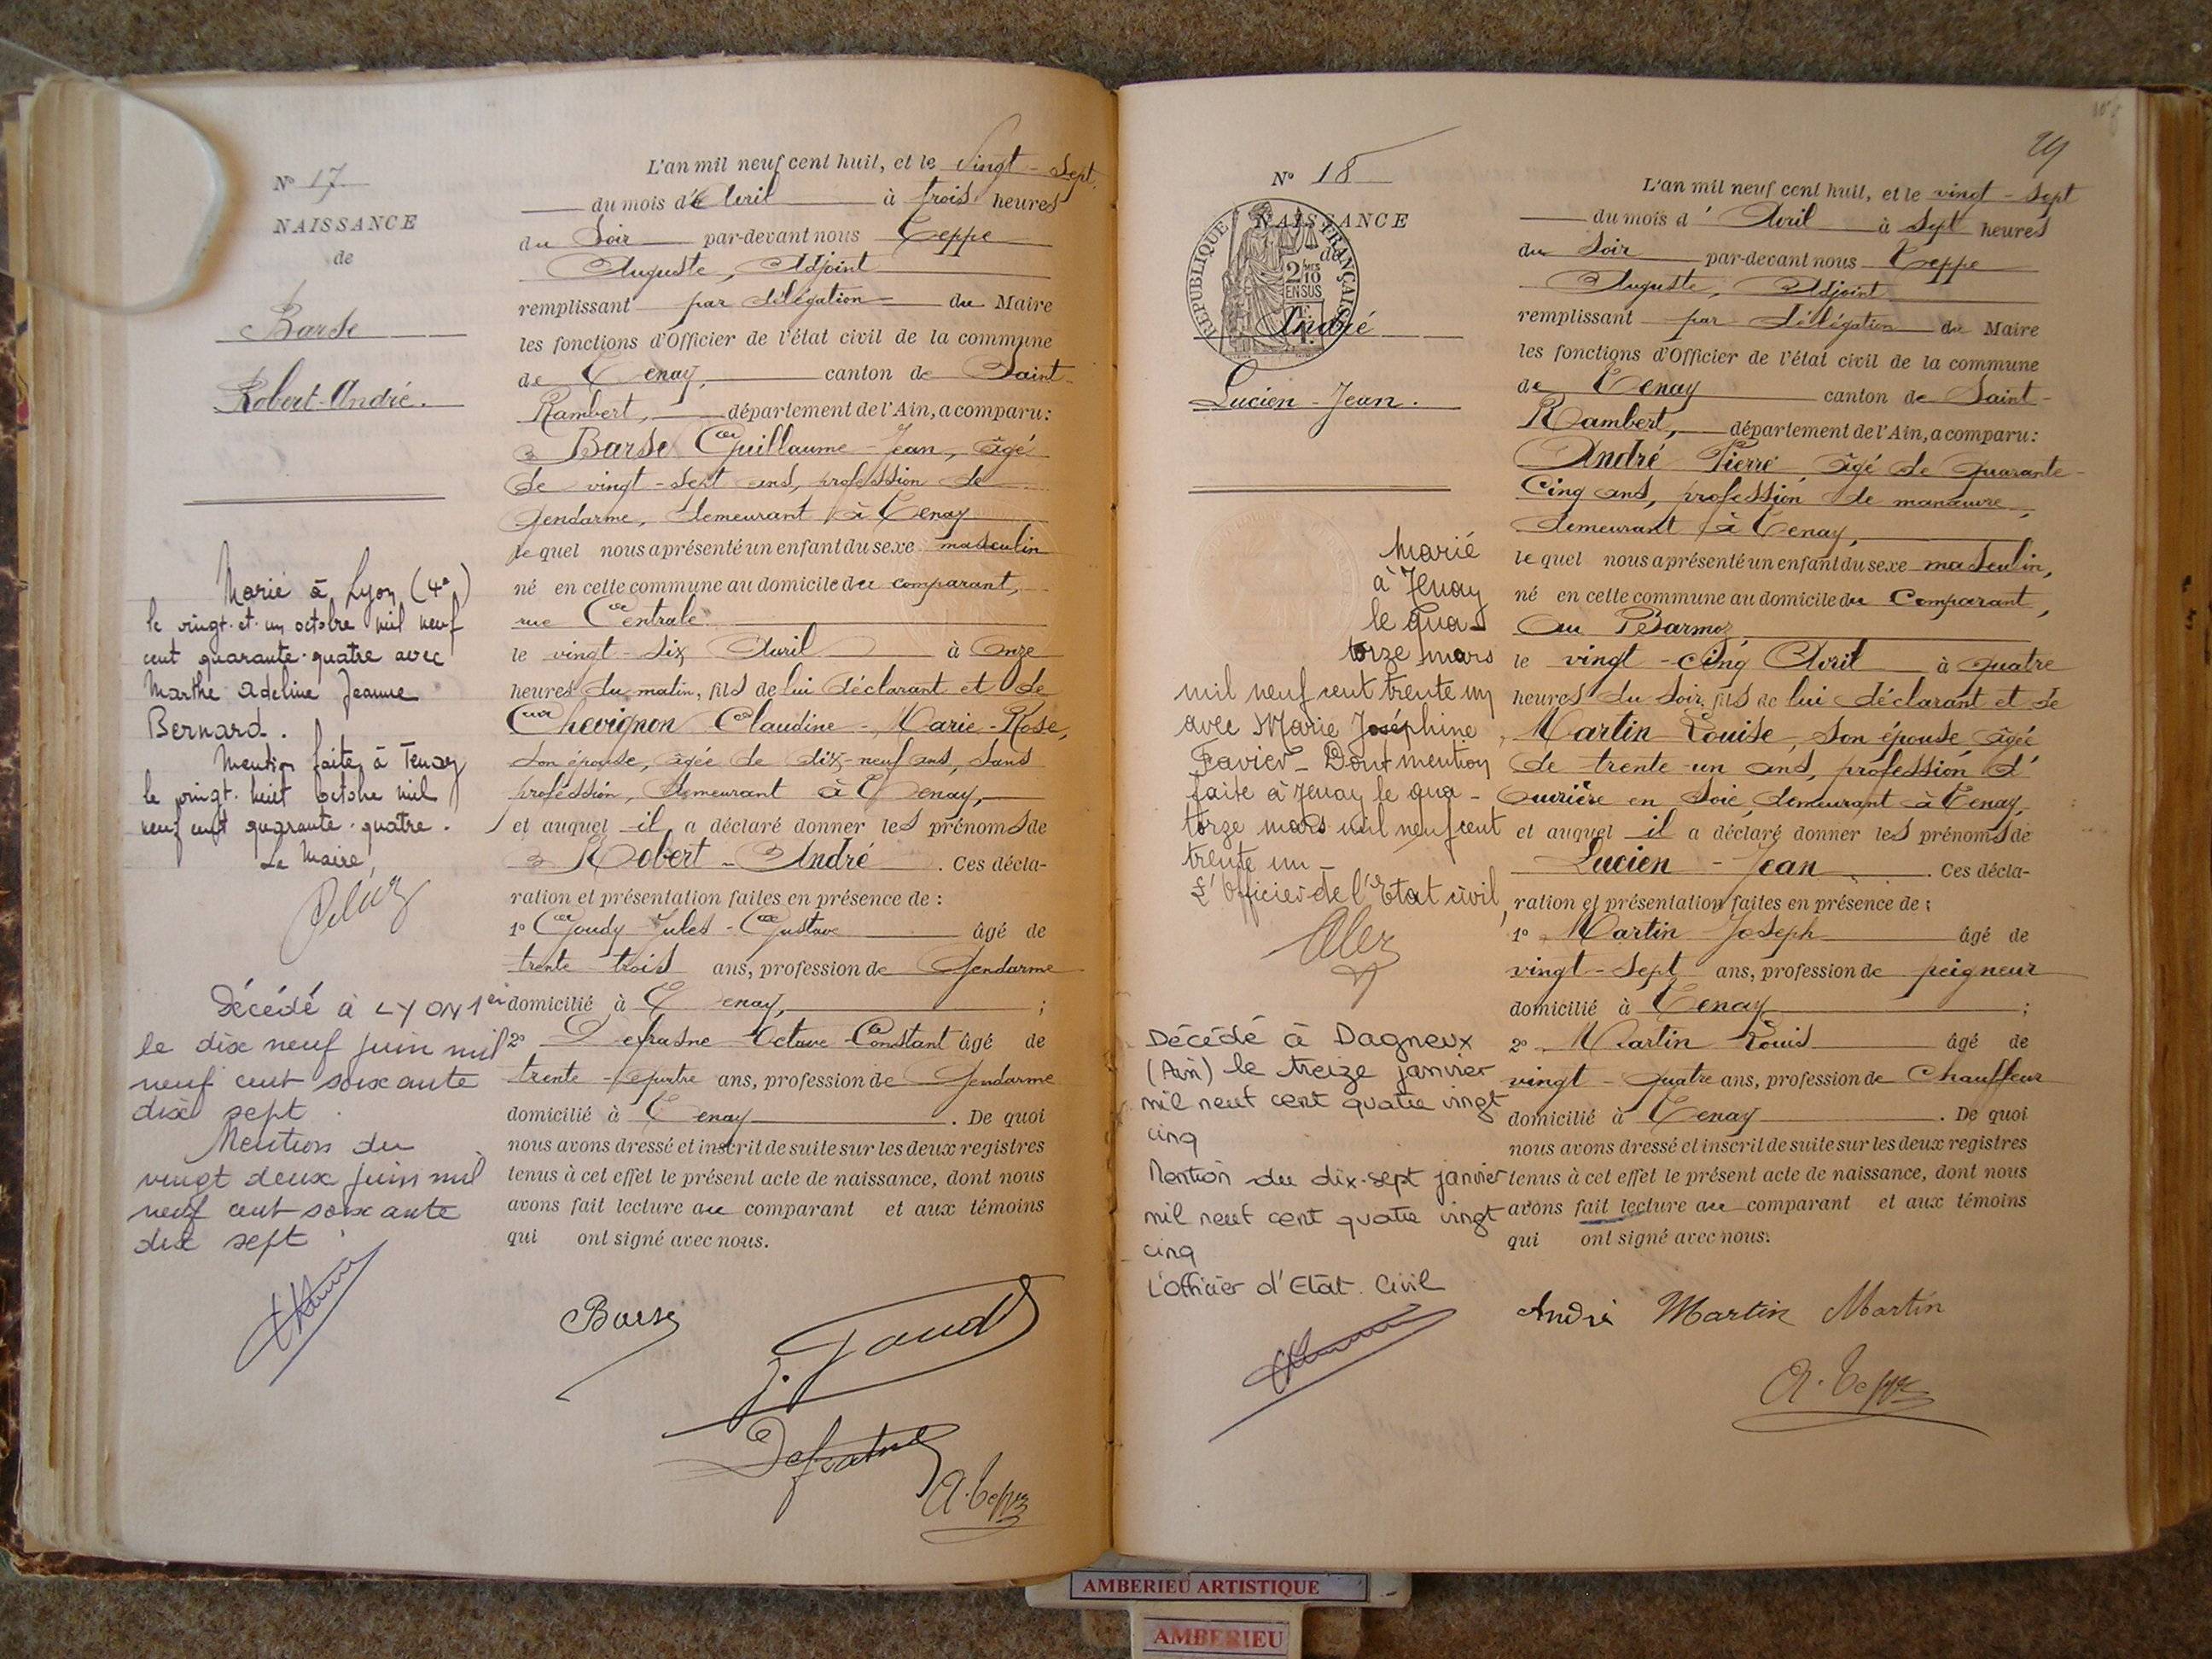 N° 17
NAISSANCE
de
Barse
Robert-André.
Marié à Lyon (4e)
le vingt-et-un octobre mil neuf
cent quarante-quatre avec
Marthe Adeline Jeanne
Bernard.
Mention faite à Tenay
le vingt-huit octobre mil
neuf cent quarante-quatre.
Le Maire,
Décédé à LYON 1er
le dix neuf juin mil
neuf cent soixante
dix sept.
Mention du
vingt deux juin mil
neuf cent soixante
dix sept.
L'an mil neuf cent huit, et le Vingt-Sept
du mois d'Avril à trois heures
du Soir par-devant nous Teppe
Auguste, Adjoint
remplissant par délégation du Maire
les fonctions d'Officier de l'état civil de la commune
de Tenay, canton de Saint-
Rambert, département de l'Ain, a comparu:
Barse Guillaume-Jean, âgé
de vingt-sept ans, profession de
Gendarme, demeurant à Tenay
lequel nous a présenté un enfant du sexe masculin
né en cette commune au domicile du comparant,
rue Centrale
le vingt-six Avril à Onze
heures du matin, fils de lui déclarant et de
Chevignon Claudine-Marie-Rose,
son épouse, âgée de dix-neuf ans, sans
profession, demeurant à Tenay,
et auquel il a déclaré donner les prénoms de
Robert-André. Ces décla-
ration et présentation faites en présence de:
1° Goudy Jules-Gustave âgé de
trente trois ans, profession de Gendarme
domicilié à Tenay, ;
2° Defrasne Octave-Constant âgé de
trente-quatre ans, profession de Gendarme
domicilié à Tenay. De quoi
nous avons dressé et inscrit de suite sur les deux registres
tenus à cet effet le présent acte de naissance, dont nous
avons fait lecture au comparant et aux témoins
qui ont signé avec nous.
Barse
J. Goudy
Defrasne
A. Teppe
29
N° 18
NAISSANCE
de
RÉPUBLIQUE FRANÇAISE
2/10MES
EN SUS
André
Lucien-Jean.
Marié
à Tenay
le qua-
torze mars
mil neuf cent trente un
avec Marie Joséphine
Favier_ Dont mention
faite à Tenay le qua-
torze mars mil neuf cent
trente un_
L'Officier de l'Etat civil,
Décédé à Dagneux
(Ain) le treize janvier
mil neuf cent quatre vingt
cinq
Mention du dix-sept janvier
mil neuf cent quatre vingt
cinq
L'officier d'Etat Civil
L'an mil neuf cent huit, et le vingt-sept
du mois d'Avril à Sept heures
du Soir par-devant nous Teppe
Auguste, Adjoint
remplissant par délégation du Maire
les fonctions d'Officier de l'état civil de la commune
de Tenay canton de Saint-
Rambert, département de l'Ain, a comparu:
André Pierre âgé de Quarante-
Cinq ans, profession de manœuvre,
demeurant à Tenay,
lequel nous a présenté un enfant du sexe masculin,
né en cette commune au domicile du Comparant,
Au Barmoz,
le vingt-cinq Avril à quatre
heures du Soir, fils de lui déclarant et de
Martin Louise, son épouse, âgée
de trente-un ans, profession d'
Ouvrière en Soie, demeurant à Tenay,
et auquel il a déclaré donner les prénoms de
Lucien-Jean. Ces décla-
ration et présentation faites en présence de:
1° Martin Joseph âgé de
vingt-sept ans, profession de peigneur
domicilié à Tenay ;
2° Martin Louis âgé de
vingt-quatre ans, profession de Chauffeur
domicilié à Tenay. De quoi
nous avons dressé et inscrit de suite sur les deux registres
tenus à cet effet le présent acte de naissance, dont nous
avons fait lecture au comparant et aux témoins
qui ont signé avec nous.
André Martin Martin
A. Teppe
AMBERIEU ARTISTIQUE
AMBERIEU